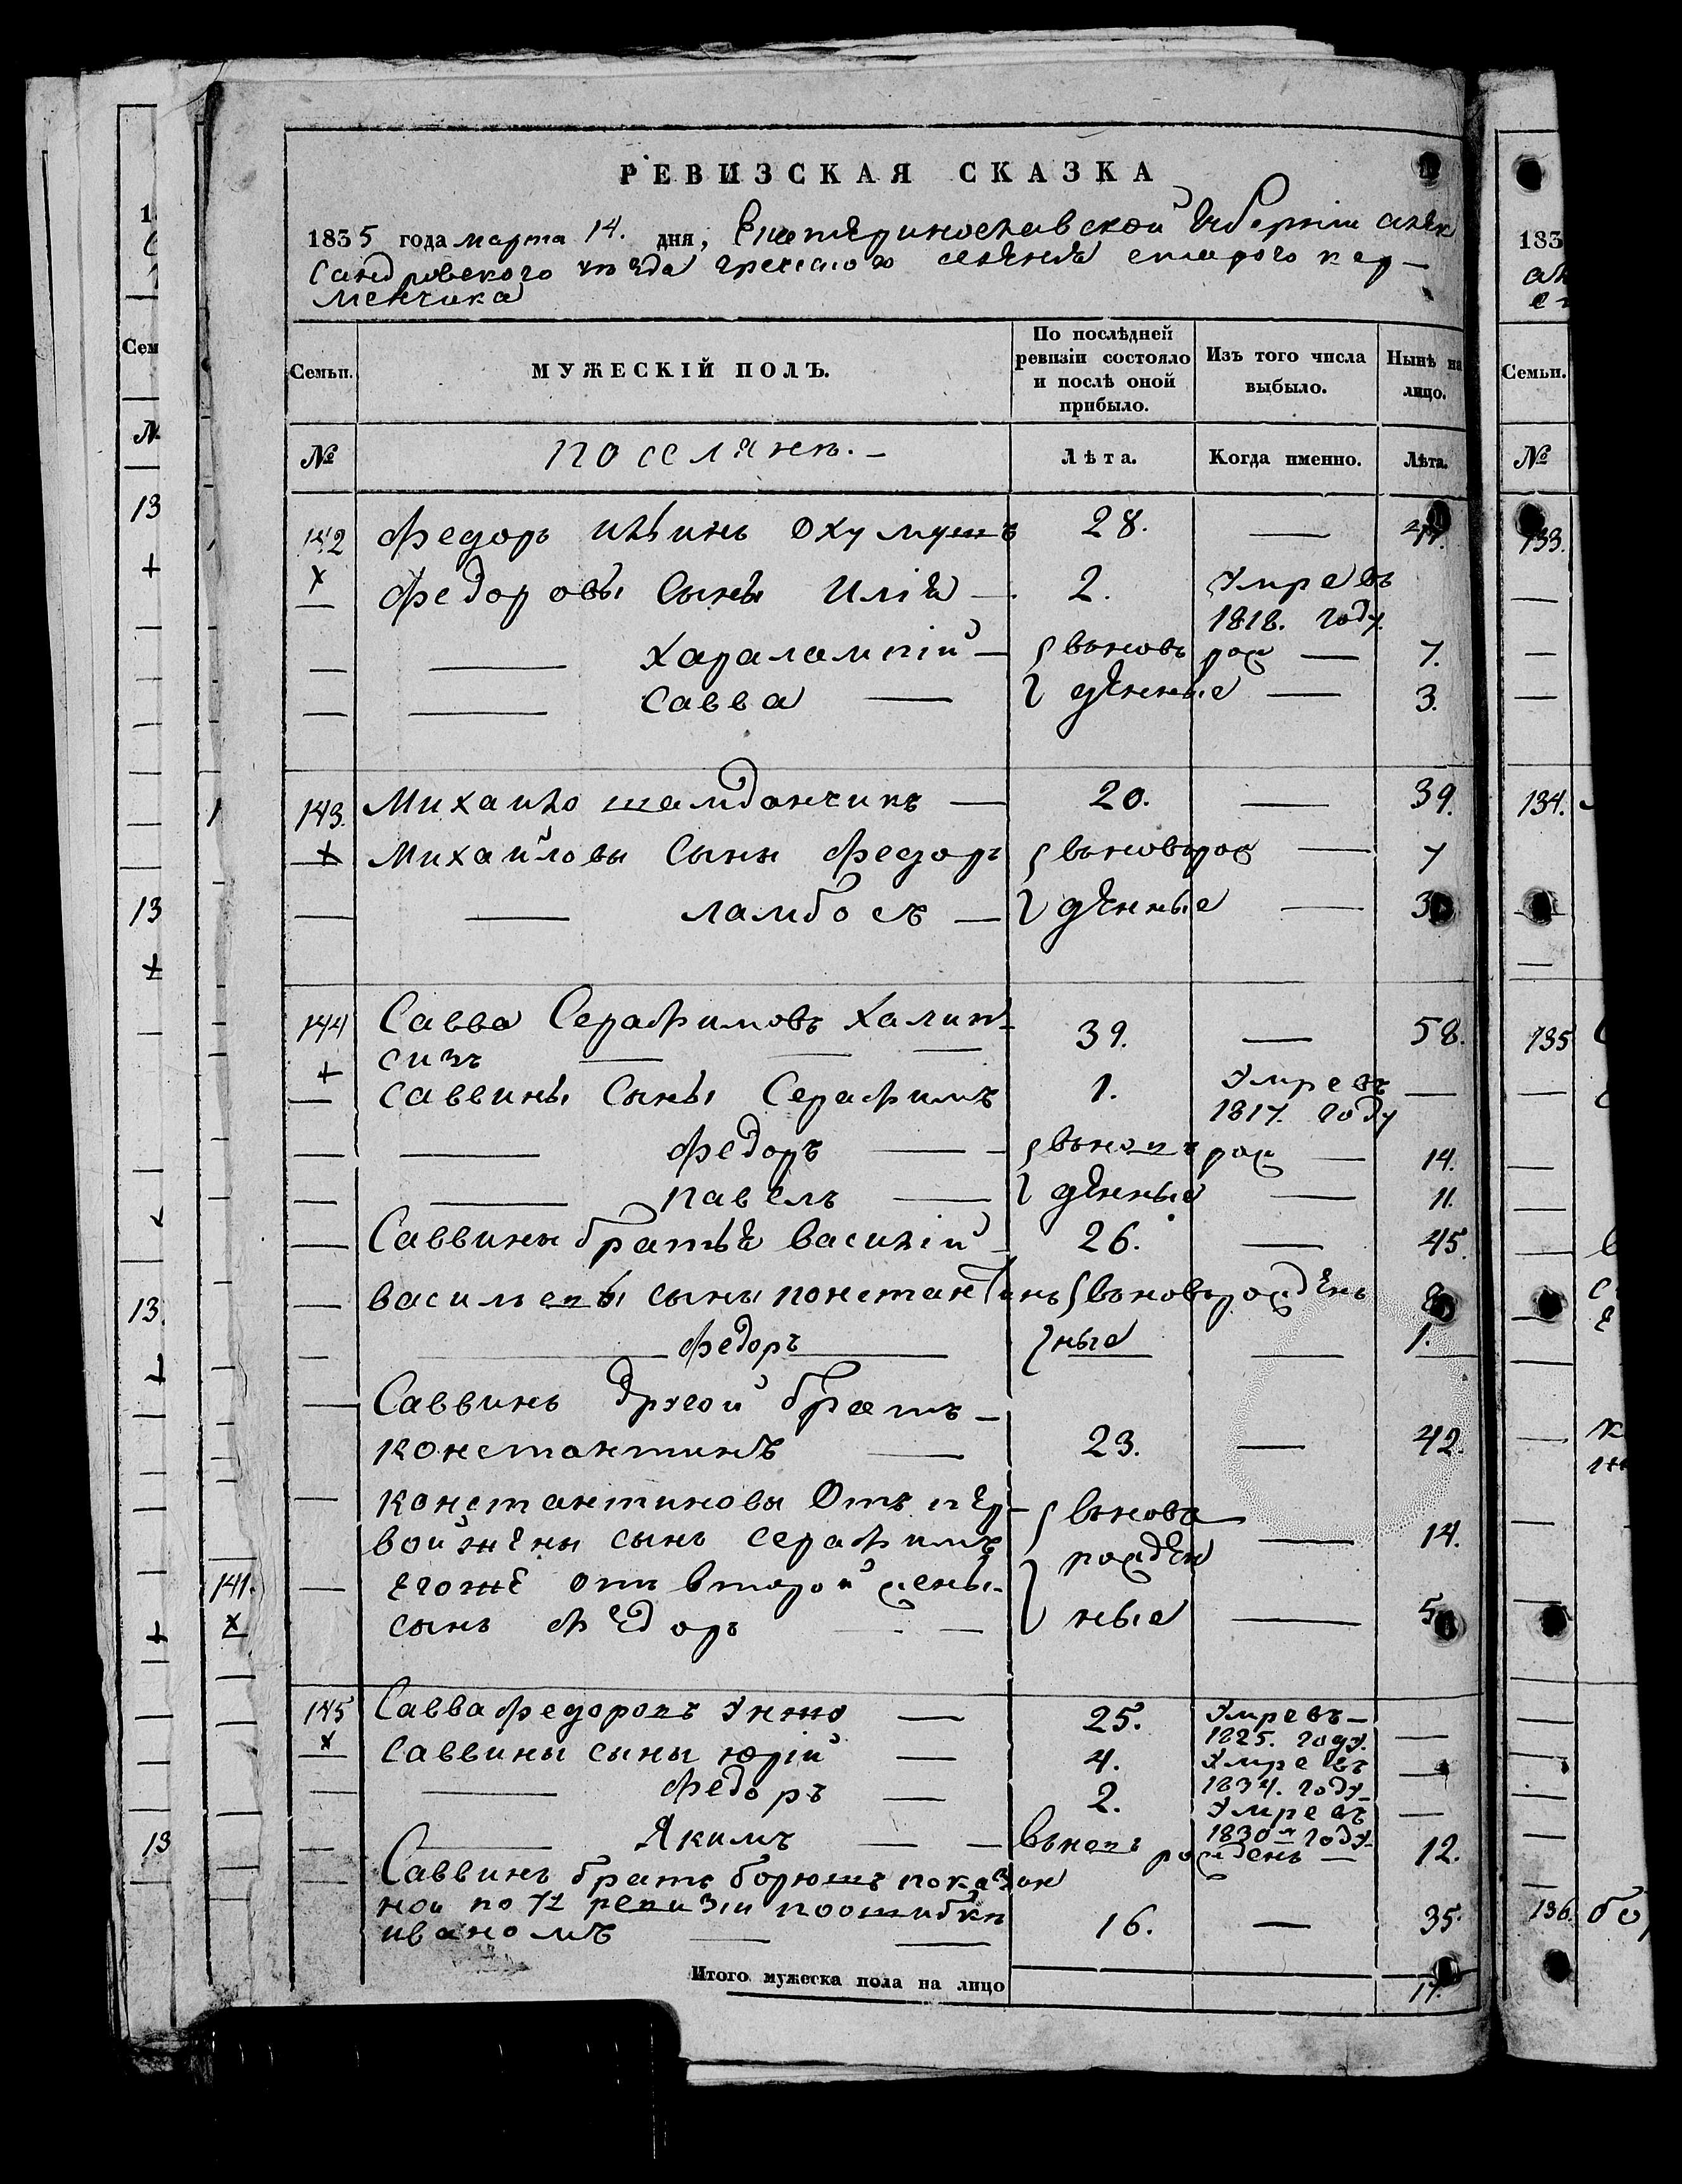 РЕВИЗСКАЯ СКАЗКА
1835 года марта 14. дня, Екатеринославской Губерніи алек
сандровского уезда греческого селения старого кер-
менчика
Семьи.
МУЖЕСКІЙ ПОЛЪ.
По послѣдней ревизіи состояло и послѣ оной прибыло.
Изъ того числа выбыло.
Нынѣ на лицо.
№
поселянъ.
Лѣта.
Когда именно.
Лѣта.
142 Федоръ Ильинъ 28. —
Федоровы сыны Илія — 2. Умре въ
1818. году.
Харалампій — вьновь рож — 7.
Савва — денные — 3.
143. Михаило шамданчикъ — 20. — 39.
Михайловы сыны Федоръ вьноворож — 7
ламбосъ — денные — 3
144 Савва Серафимовъ Халип- 39. — 58.
сизъ
Саввины сыны Серафимъ 1. Умре въ —
1817. году
Федоръ — вьновъ рож — 14.
павелъ — денные — 11.
Саввины братья василій 26. — 45.
васильевы сыны константинъ вьноворожден 8
Федоръ ные — 1.
Саввинъ другой братъ —
константинъ — 23. — 42.
константиновы отъ пер- вьново
вой жены сынъ серафимъ рожден — 14.
егоже отъ второй жены
сынъ Федоръ — ные — 5
145 Савва федоровъ — 25. Умре въ —
1825. году.
Саввины сыны юрій — 4. Умре въ —
1834. году
Федоръ — 2. Умре въ —
1830м году
Якимъ — вьновъ рожденъ — 12.
Саввинъ братъ борюшъ показан
ной по 7й ревизіи поошибки
иваномъ — 16. — 35.
Итого мужеска пола на лицо
141.
183
Семьи.
№
133.
134.
135
136.